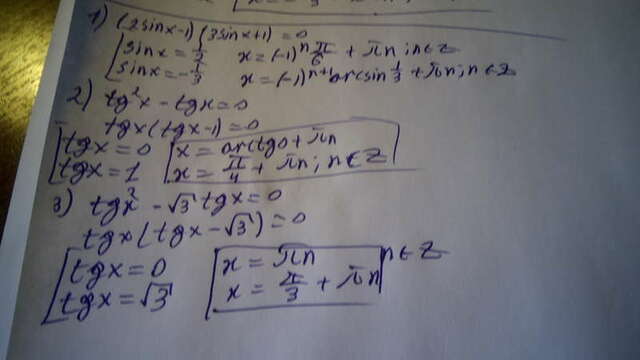 1) (2sinx-1)(3sinx+1)=0
[sinx = 1/2 x = (-1)ⁿ π/6 + πn; n∈Z
[sinx = -1/3 x = (-1)ⁿ⁺¹ arcsin 1/3 + πn; n∈Z
2) tg²x - tgx = 0
tgx(tgx-1) = 0
[tgx = 0 [x = arctg0 + πn
[tgx = 1 [x = π/4 + πn; n∈Z
3) tgx² - √3 tgx = 0
tgx(tgx - √3) = 0
[tgx = 0 [x = πn n∈Z
[tgx = √3 [x = π/3 + πn